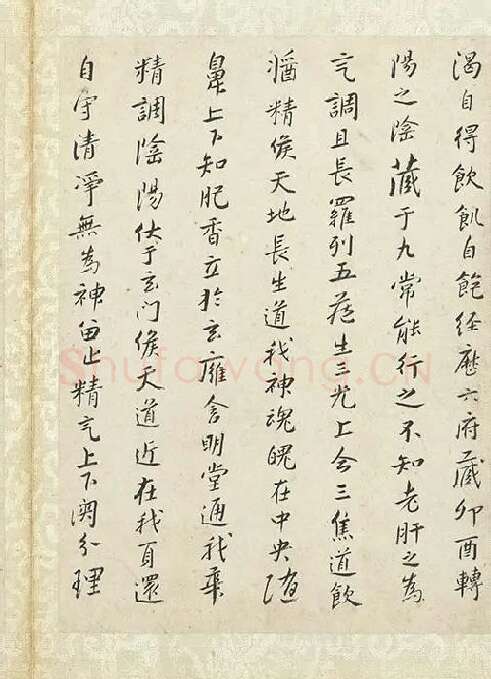 渴自得飲飢自飽经歷六府藏卯酉轉
陽之陰藏于九常能行之不知老肝之為
气調且長羅列五藏生三光上合三焦道飲
醬精候天地長生道我神魂魄在中央随
鼻上下知肥香立於玄膺含明堂通我華
精調陰陽伏于玄门候天道近在我身還
自守清淨無為神留止精气上下関分理
Shufawang.CN